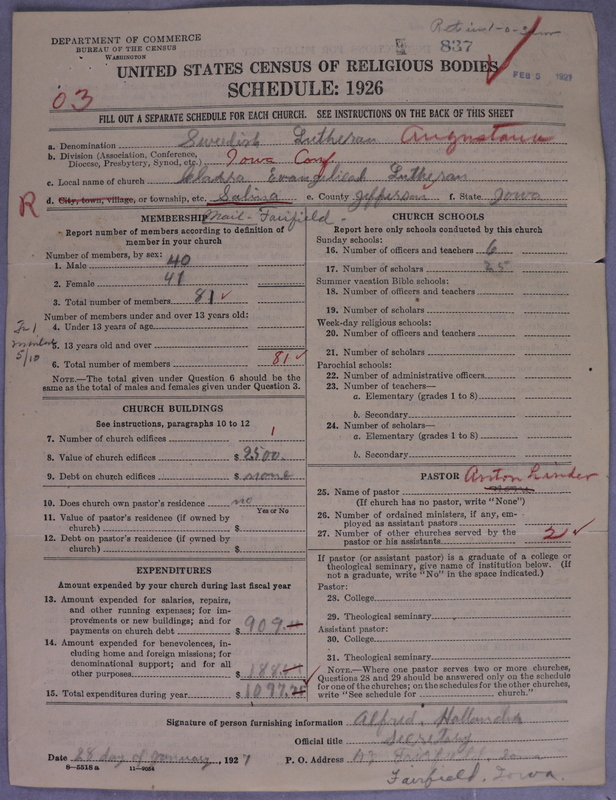 DEPARTMENT OF COMMERCE
BUREAU OF THE CENSUS
WASHINGTON
837
UNITED STATES CENSUS OF RELIGIOUS BODIES
FEB 5 1927
SCHEDULE: 1926
03
FILL OUT A SEPARATE SCHEDULE FOR EACH CHURCH. SEE INSTRUCTIONS ON THE BACK OF THIS SHEET
a. Denomination Swedish Lutheran Augustana
b. Division (Association, Conference, Diocese, Presbytery, Synod, etc.) Iowa Conf
c. Local name of church Evangelical Lutheran
R d. City, town, village, or township, etc. Salina e. County Jefferson f. State Iowa
Mail - Fairfield -
MEMBERSHIP
Report number of members according to definition of
member in your church
Number of members, by sex:
1. Male 40
2. Female 41
3. Total number of members 81
Number of members under and over 13 years old:
4. Under 13 years of age
5. 13 years old and over
5/10
6. Total number of members 81
NOTE.—The total given under Question 6 should be the
same as the total of males and females given under Question 3.
CHURCH BUILDINGS
See instructions, paragraphs 10 to 12
7. Number of church edifices 1
8. Value of church edifices $ 2500.
9. Debt on church edifices $ none
10. Does church own pastor's residence no
Yes or No
11. Value of pastor's residence (if owned by
church) $
12. Debt on pastor's residence (if owned by
church) $
EXPENDITURES
Amount expended by your church during last fiscal year
13. Amount expended for salaries, repairs,
and other running expenses; for im-
provements or new buildings; and for
payments on church debt $ 909.
14. Amount expended for benevolences, in-
cluding home and foreign missions; for
denominational support; and for all
other purposes $ 188.
15. Total expenditures during year $ 1097.
CHURCH SCHOOLS
Report here only schools conducted by this church
Sunday schools:
16. Number of officers and teachers 6
17. Number of scholars 25
Summer vacation Bible schools:
18. Number of officers and teachers
19. Number of scholars
Week-day religious schools:
20. Number of officers and teachers
21. Number of scholars
Parochial schools:
22. Number of administrative officers
23. Number of teachers—
a. Elementary (grades 1 to 8)
b. Secondary
24. Number of scholars—
a. Elementary (grades 1 to 8)
b. Secondary
PASTOR Anton Linder
25. Name of pastor none
(If church has no pastor, write "None")
26. Number of ordained ministers, if any, em-
ployed as assistant pastors
27. Number of other churches served by the
pastor or his assistants 2
If pastor (or assistant pastor) is a graduate of a college or
theological seminary, give name of institution below. (If
not a graduate, write "No" in the space indicated.)
Pastor:
28. College
29. Theological seminary
Assistant pastor:
30. College
31. Theological seminary
NOTE.—Where one pastor serves two or more churches,
Questions 28 and 29 should be answered only on the schedule
for one of the churches; on the schedules for the other churches,
write "See schedule for church."
Signature of person furnishing information Alfred. Hollander
Official title Secretary
Date 28 day of January, 1927 P. O. Address Fairfield Iowa
8—5518a 11—9034
Fairfield, Iowa.